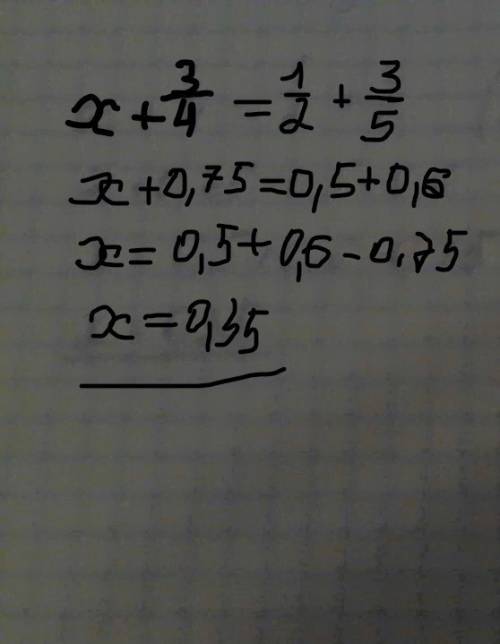 x + 3/4 = 1/2 + 3/5
x + 0,75 = 0,5 + 0,6
x = 0,5 + 0,6 - 0.75
x = 0,35